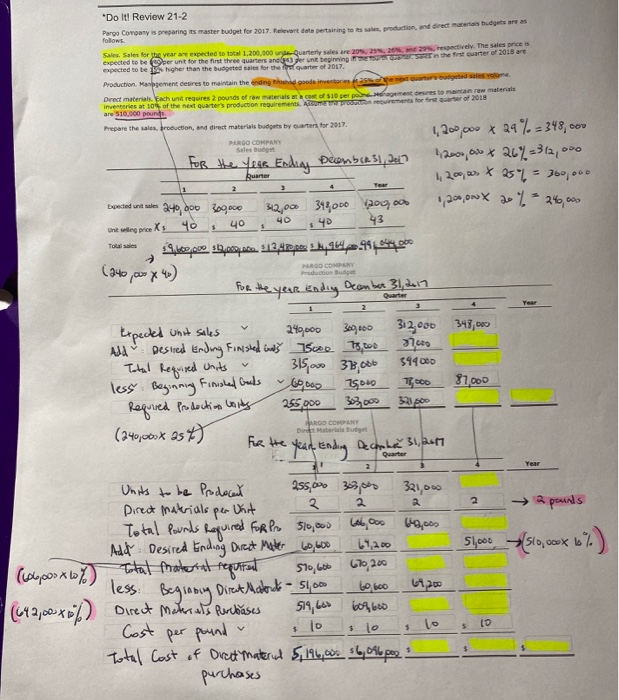 *Do It! Review 21-2
Pargo Company is preparing its master budget for 2017. Relevant data pertaining to its sales, production, and direct materials budgets are as
follows.
Sales. Sales for the year are expected to total 1,200,000 units. Quarterly sales are 20%, 25%, 26%, and 29%, respectively. The sales price is
expected to be $40 per unit for the first three quarters and $43 per unit beginning in the fourth quarter. Sales in the first quarter of 2018 are
expected to be higher than the budgeted sales for the first quarter of 2017.
Production. Management desires to maintain the ending finished goods inventories at 25% of the next quarter's budgeted sales volume.
Direct materials. Each unit requires 2 pounds of raw materials at a cost of $10 per pound. Management desires to maintain raw materials
inventories at 10% of the next quarter's production requirements. Assume the production requirements for first quarter of 2018
are 510,000 pounds.
Prepare the sales, production, and direct materials budgets by quarters for 2017.
1,200,000 x 29% = 348,000
1,200,000 x 26% = 312,000
1,200,000 x 25% = 360,000
1,200,000 x 20% = 240,000
PARGO COMPANY
Sales Budget
For the Year Ending December 31, 2017
Quarter
1 2 3 4 Year
Expected unit sales 240,000 300,000 312,000 348,000
Unit selling price X $ 40 $ 40 40 $ 40 43
Total sales $9,600,000
(240,000 x 40)
PARGO COMPANY
Production Budget
For the year Ending December 31, 2017
Quarter
1 2 3 4 Year
Expected Unit Sales 240,000 300,000 312,000 348,000
Add: Desired Ending Finished Goods 75000 78,000 87000
Total Required Units 315,000 378,000 399000
less: Beginning Finished Goods 60,000 75000 78,000 87,000
Required Production Units 255,000 303,000 321,000
(240,000 x 25%)
PARGO COMPANY
Direct Materials Budget
For the year Ending December 31, 2017
Quarter
1 2 3 4 Year
Units to be Produced 255,000 303,000 321,000
Direct Materials per Unit 2 2 2 2 → 2 pounds
Total Pounds Required For Pro 510,000 606,000 642,000
Add: Desired Ending Direct Mater 60,600 64,200 51,000 → (510,000 x 10%)
(606,000 x 10%) Total Material required 570,600 670,200
less: Beginning Direct Materials - 51,000 60,600 64,200
(642,000 x 10%) Direct Materials Purchases 519,600 609,600
Cost per pound $ 10 $ 10 $ 10 $ 10
Total Cost of Direct Material 5,196,000 $6,096,000 $ $ $
purchases